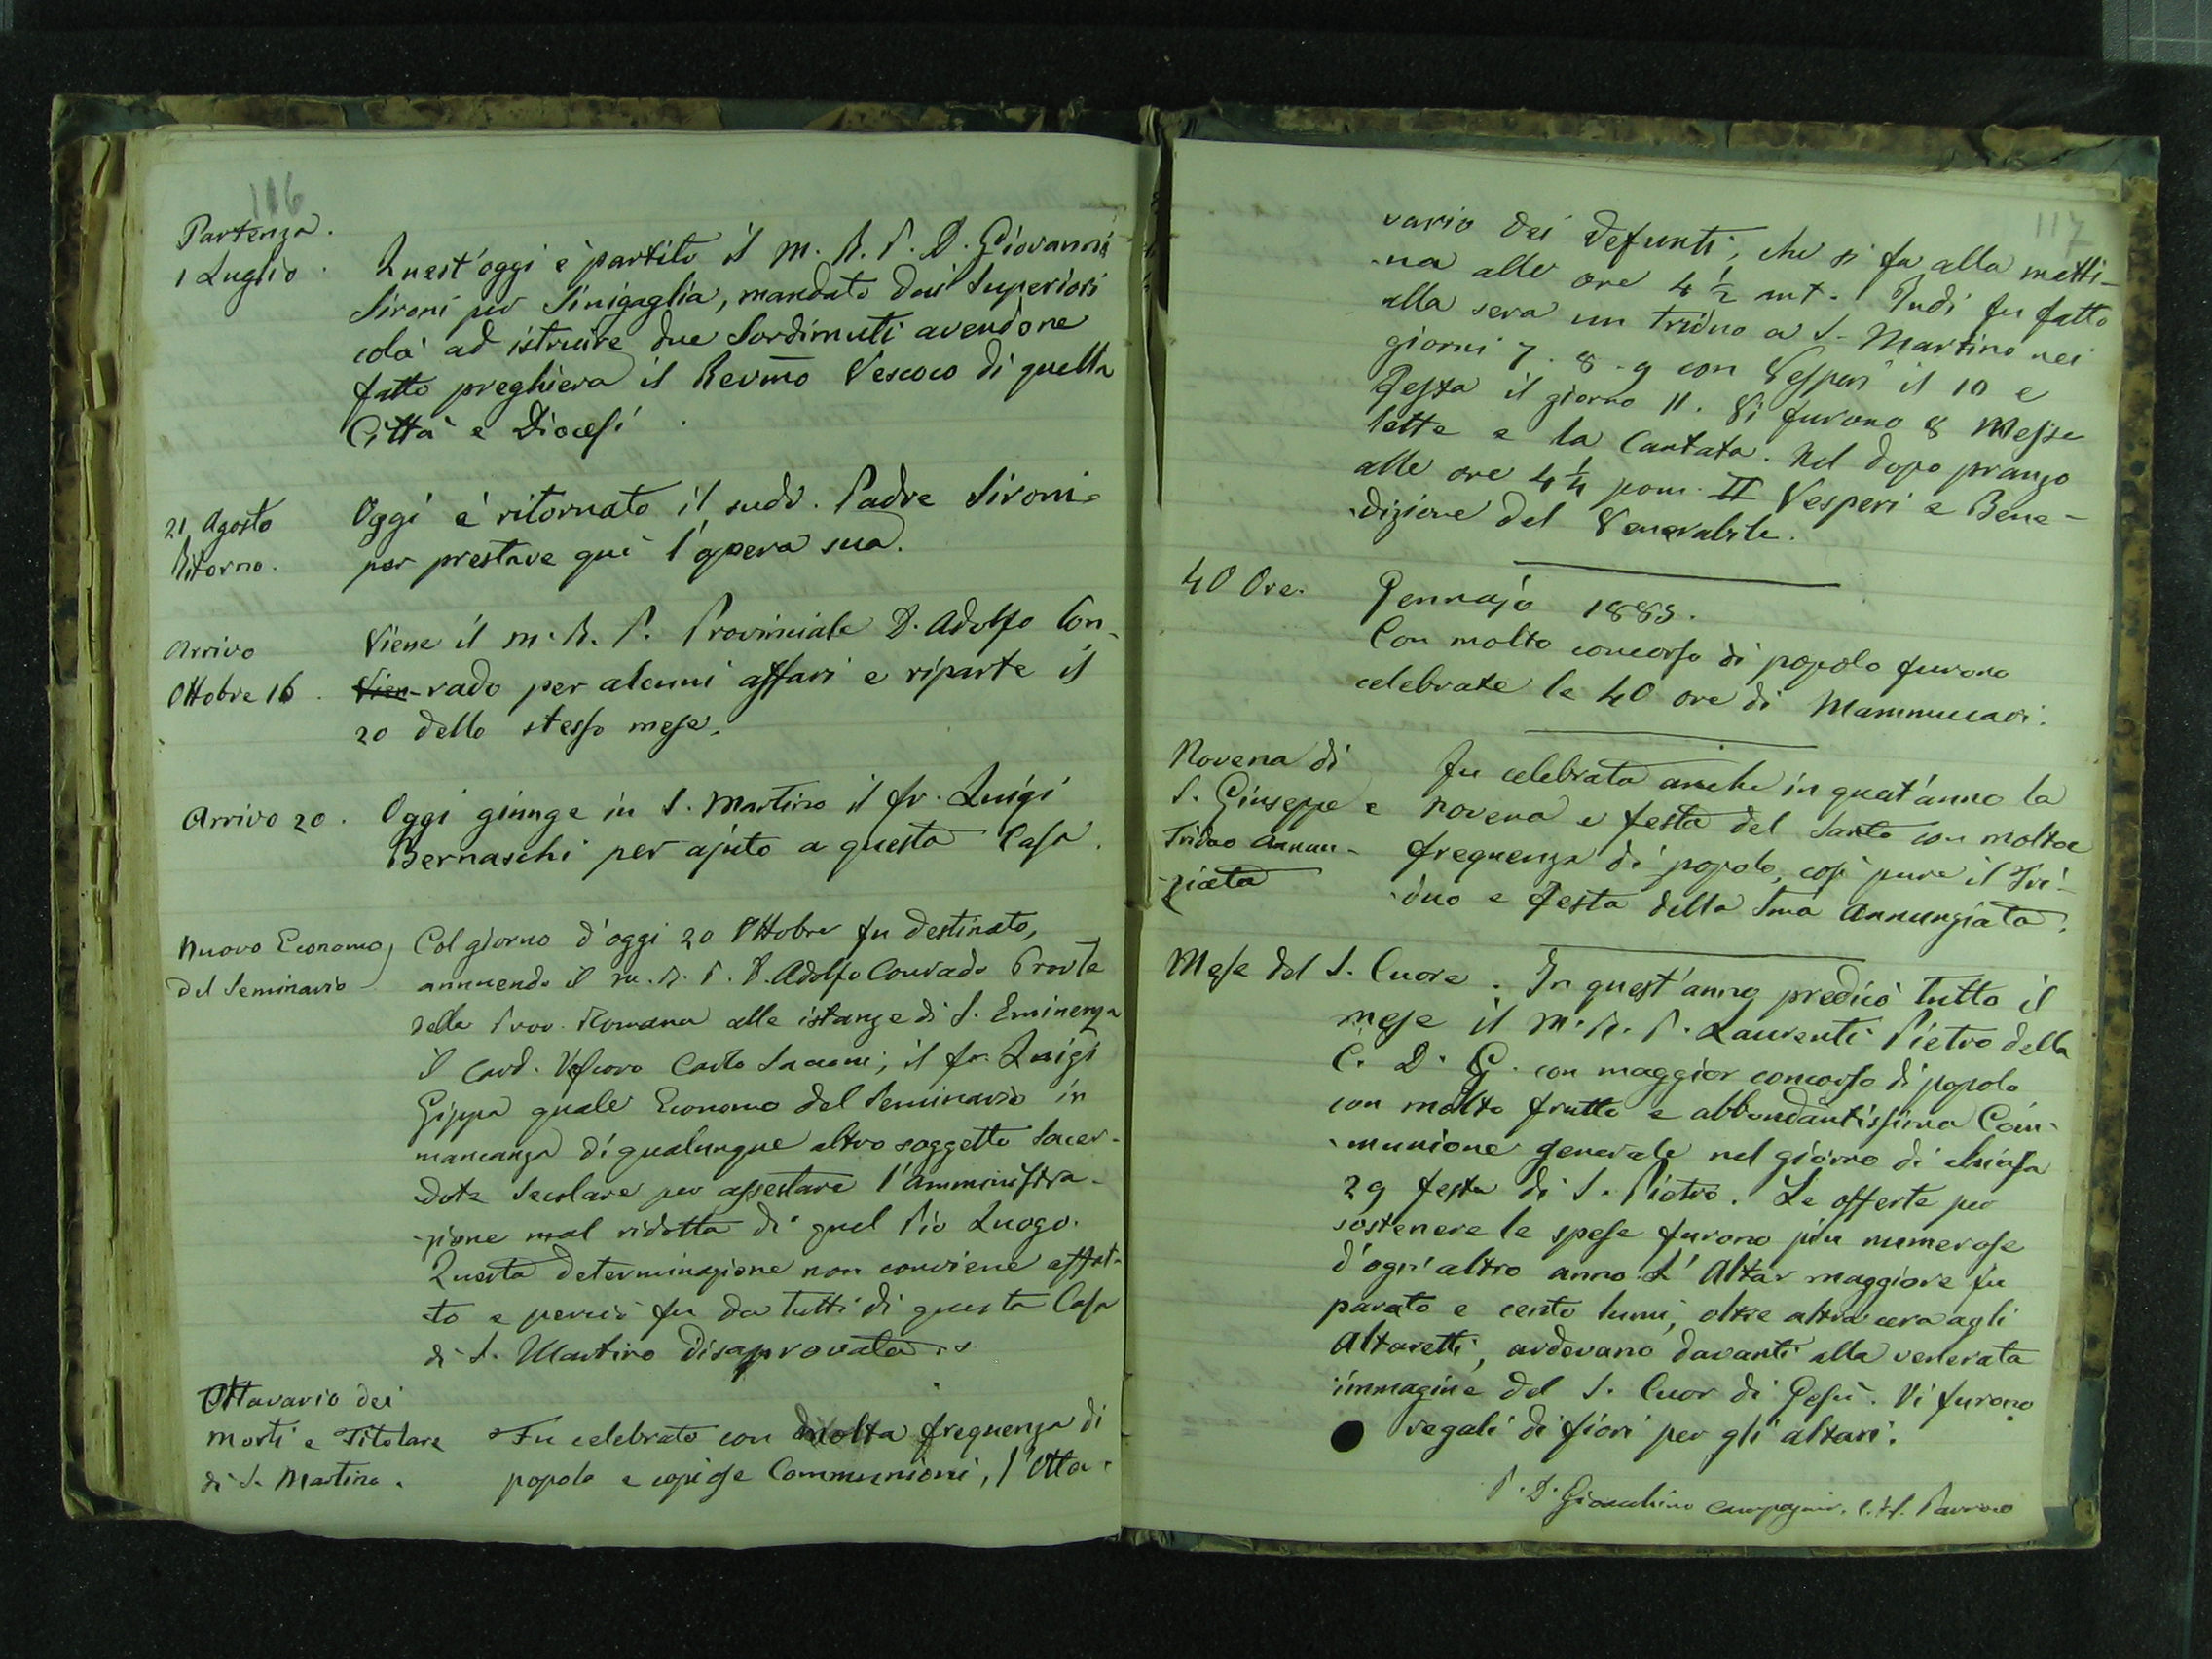 116
Partenza.
1 Luglio.
Quest'oggi è partito il M. R. P. D. Giovanni
Sironi per Sinigaglia, mandato dai Superiori
colà ad istruire due Sordimuti avendone
fatto preghiera il Revmo Vescovo di quella
Città e Diocesi.
21 Agosto
Ritorno.
Oggi è ritornato il sudd. Padre Sironi
per prestare qui l'opera sua.
Arrivo
Ottobre 16.
Viene il M. R. P. Provinciale D. Adolfo Con-
Vien-rado per alcuni affari e riparte il
20 dello stesso mese.
Arrivo 20.
Oggi giunge in S. Martino il fr. Luigi
Bernaschi per ajuto a questa Casa.
Nuovo Economo
del Seminario
Col giorno d'oggi 20 Ottobre fu destinato,
annuendo il M. R. P. D. Adolfo Conrado Provle
della Prov. Romana alle istanze di S. Eminenza
il Card. Vescovo Carlo Sacconi; il fr. Luigi
Gippa quale Economo del Seminario in
mancanza di qualunque altro soggetto Sacer-
dote Secolare per assestare l'amministra-
zione mal ridotta di quel Pio Luogo.
Questa determinazione non conviene affat-
to e perciò fu da tutti di questa Casa
di S. Martino disaprovata.
Ottavario dei
morti e Titolare
di S. Martino.
Fu celebrato con molta frequenza di
popolo e copiose Communioni, l'Otta-
117
vario dei defunti, che si fa alla matti-
-na alle ore 4 ½ ant. Indi fu fatto
alla sera un triduo a S. Martino nei
giorni 7. 8. 9 con Vesperi il 10 e
Festa il giorno 11. Vi furono 8 Messe
lette e la Cantata. Nel dopo pranzo
alle ore 4 ¼ pom. II Vesperi e Bene-
-dizione del Venerabile.
40 Ore.
Gennajo 1885.
Con molto concorso di popolo furono
celebrate le 40 ore di Mammucari.
Novena di
S. Giuseppe e
Triduo Annun-
-ziata
Fu celebrata anche in quest'anno la
novena e festa del Santo con molta
frequenza di popolo, così pure il Tri-
-duo e festa della Sma Annunziata.
Mese del S. Cuore. In quest'anno predicò tutto il
mese il M. R. P. Laurenti Pietro della
C. D. G. con maggior concorso di popolo
con molto frutto e abbondantissima Com-
-munione generale nel giorno di chiusa
29 festa di S. Pietro. Le offerte per
sostenere le spese furono più numerose
d'ogn'altro anno. L'Altar maggiore fu
parato e cento lumi, oltre altra cera agli
Altaretti, ardevano davanti alla venerata
immagine del S. Cuor di Gesù. Vi furono
regali di fiori per gli altari.
P. D. Gioacchino Campagner